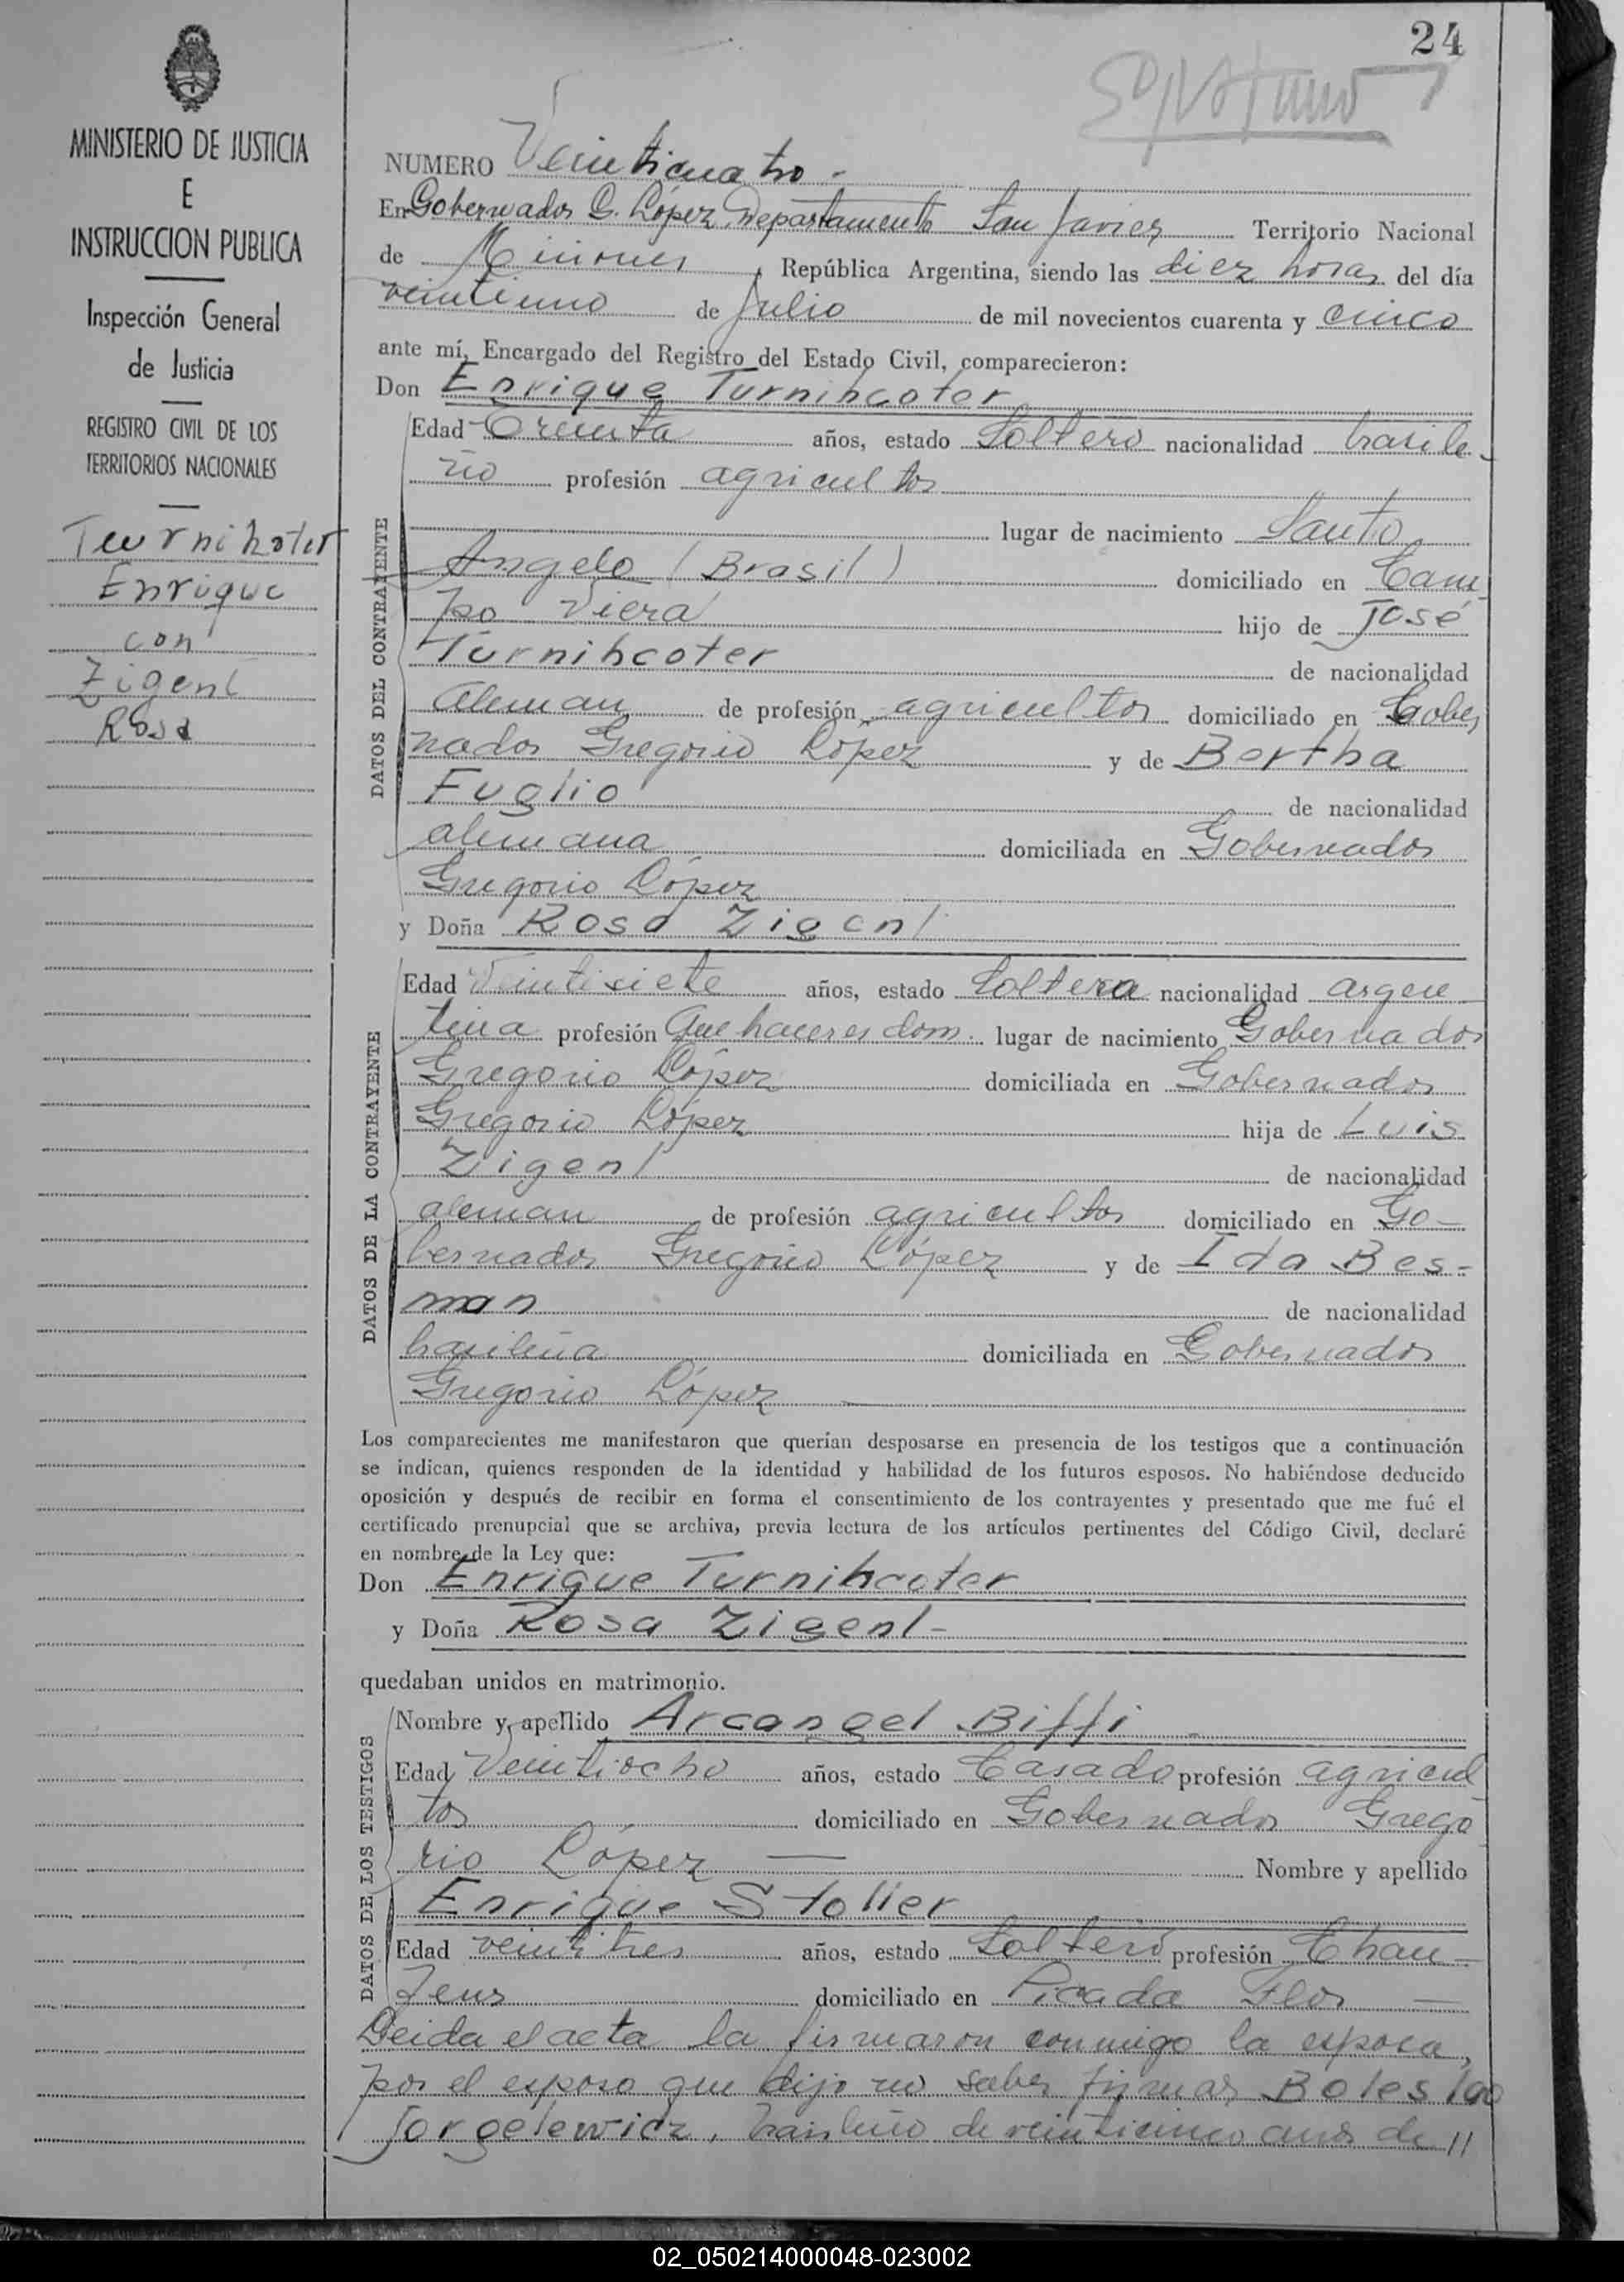 24
MINISTERIO DE JUSTICIA
E
INSTRUCCION PUBLICA
Inspección General
de Justicia
REGISTRO CIVIL DE LOS
TERRITORIOS NACIONALES
Turnihoter
Enrique
con
Zigenl
Rosa
NUMERO Veinticuatro.-
En Gobernador G. López, Departamento San Javier Territorio Nacional
de Misiones, República Argentina, siendo las diez horas del día
veintiuno de Julio de mil novecientos cuarenta y cinco
ante mí, Encargado del Registro del Estado Civil, comparecieron:
Don Enrique Turnihcoter
DATOS DEL CONTRAYENTE
Edad Treinta años, estado Soltero nacionalidad brasile-
ño profesión agricultor
lugar de nacimiento Santo
Angelo (Brasil) domiciliado en Cam-
po Viera hijo de José
Turnihcoter de nacionalidad
aleman de profesión agricultor domiciliado en Gober
nador Gregorio López y de Bertha
Fuglio de nacionalidad
alemana domiciliada en Gobernador
Gregorio López
y Doña Rosa Zigenl
DATOS DE LA CONTRAYENTE
Edad Veintisiete años, estado Soltera nacionalidad argen
tina profesión Quehaceres dom. lugar de nacimiento Gobernador
Gregorio López domiciliada en Gobernador
Gregorio López hija de Luis
Zigenl de nacionalidad
aleman de profesión agricultor domiciliado en Go-
bernador Gregorio López y de Ida Bes-
man de nacionalidad
brasileña domiciliada en Gobernador
Gregorio López
Los comparecientes me manifestaron que querían desposarse en presencia de los testigos que a continuación
se indican, quienes responden de la identidad y habilidad de los futuros esposos. No habiéndose deducido
oposición y después de recibir en forma el consentimiento de los contrayentes y presentado que me fué el
certificado prenupcial que se archiva, previa lectura de los artículos pertinentes del Código Civil, declaré
en nombre de la Ley que:
Don Enrique Turnihcoter
y Doña Rosa Zigenl-
quedaban unidos en matrimonio.
DATOS DE LOS TESTIGOS
Nombre y apellido Arcangel Biffi
Edad Veintiocho años, estado Casado profesión agricul
tor domiciliado en Gobernador Grego
rio López Nombre y apellido
Enrique Stoller
Edad veintitres años, estado Soltero profesión Chau-
feur domiciliado en Picada Flor
Leida el acta la firmaron conmigo la esposa,
por el esposo que dijo no saber firmar, Boleslao
Jorgelewicz, brasileño de veinticinco años de //
02_050214000048-023002